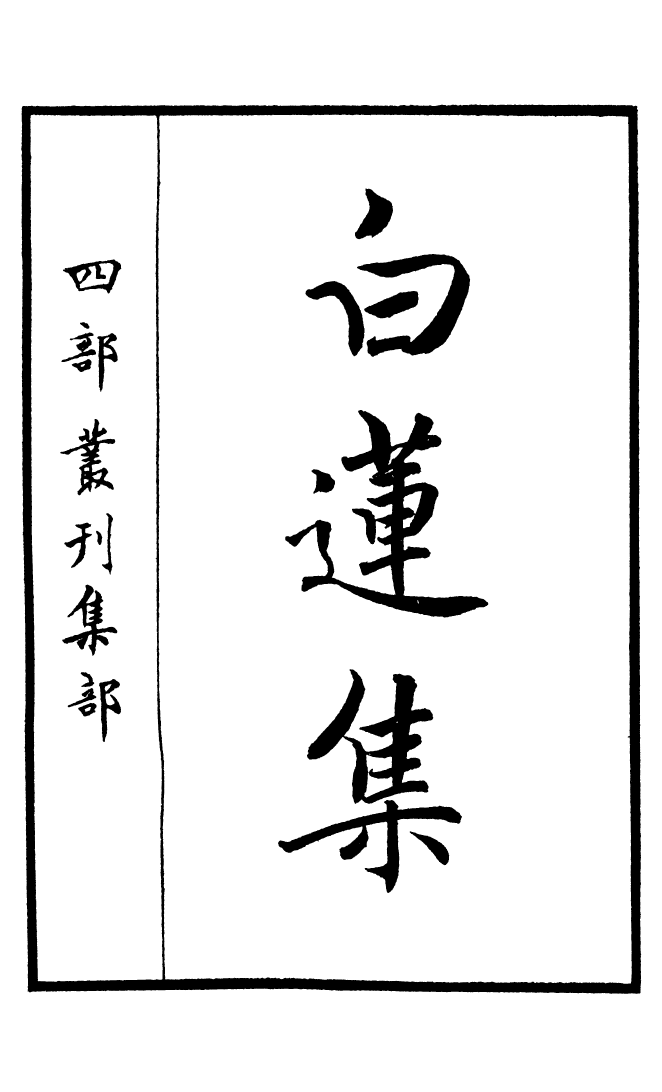 白蓮集
四部叢刊集部